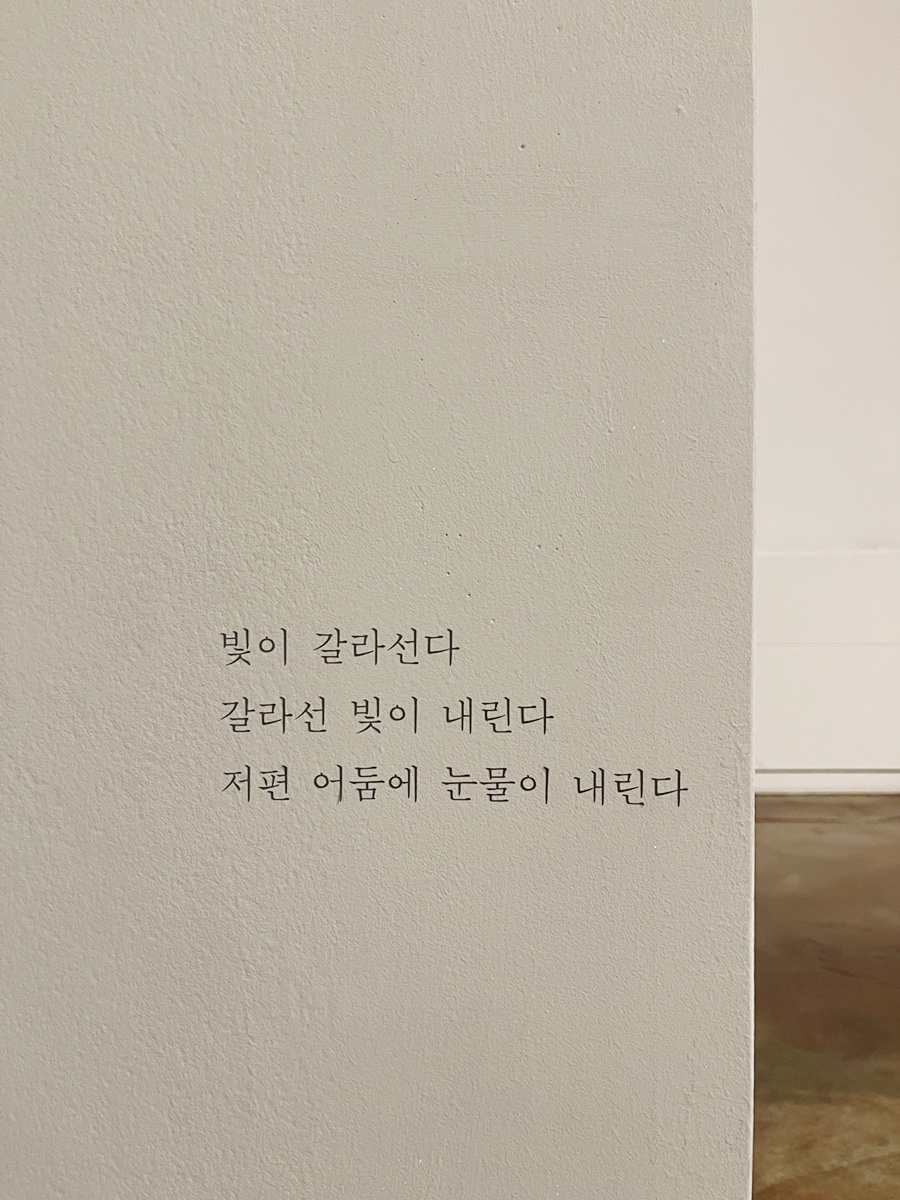 빛이 갈라선다
갈라선 빛이 내린다
저편 어둠에 눈물이 내린다